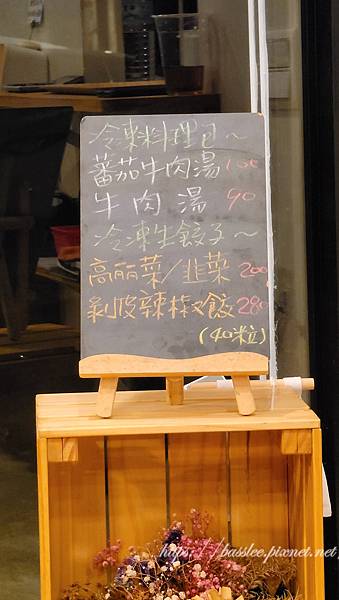 冷凍料理包～
蕃茄牛肉湯 100
牛肉湯 90
冷凍生餃子～
高丽菜/韭菜 200
剝皮辣椒餃 280
(40粒)
https://basslee.pixnet.net